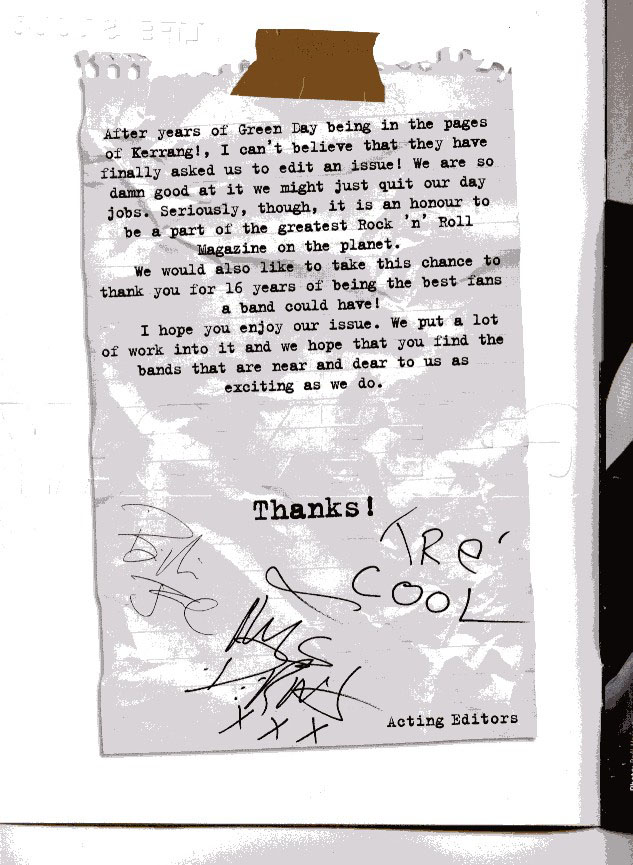 After years of Green Day being in the pages
of Kerrang!, I can't believe that they have
finally asked us to edit an issue! We are so
damn good at it we might just quit our day
jobs. Seriously, though, it is an honour to
be a part of the greatest Rock 'n' Roll
Magazine on the planet.
We would also like to take this chance to
thank you for 16 years of being the best fans
a band could have!
I hope you enjoy our issue. We put a lot
of work into it and we hope that you find the
bands that are near and dear to us as
exciting as we do.
Thanks!
Billie
Joe
TRE'
COOL
X X X
Acting Editors